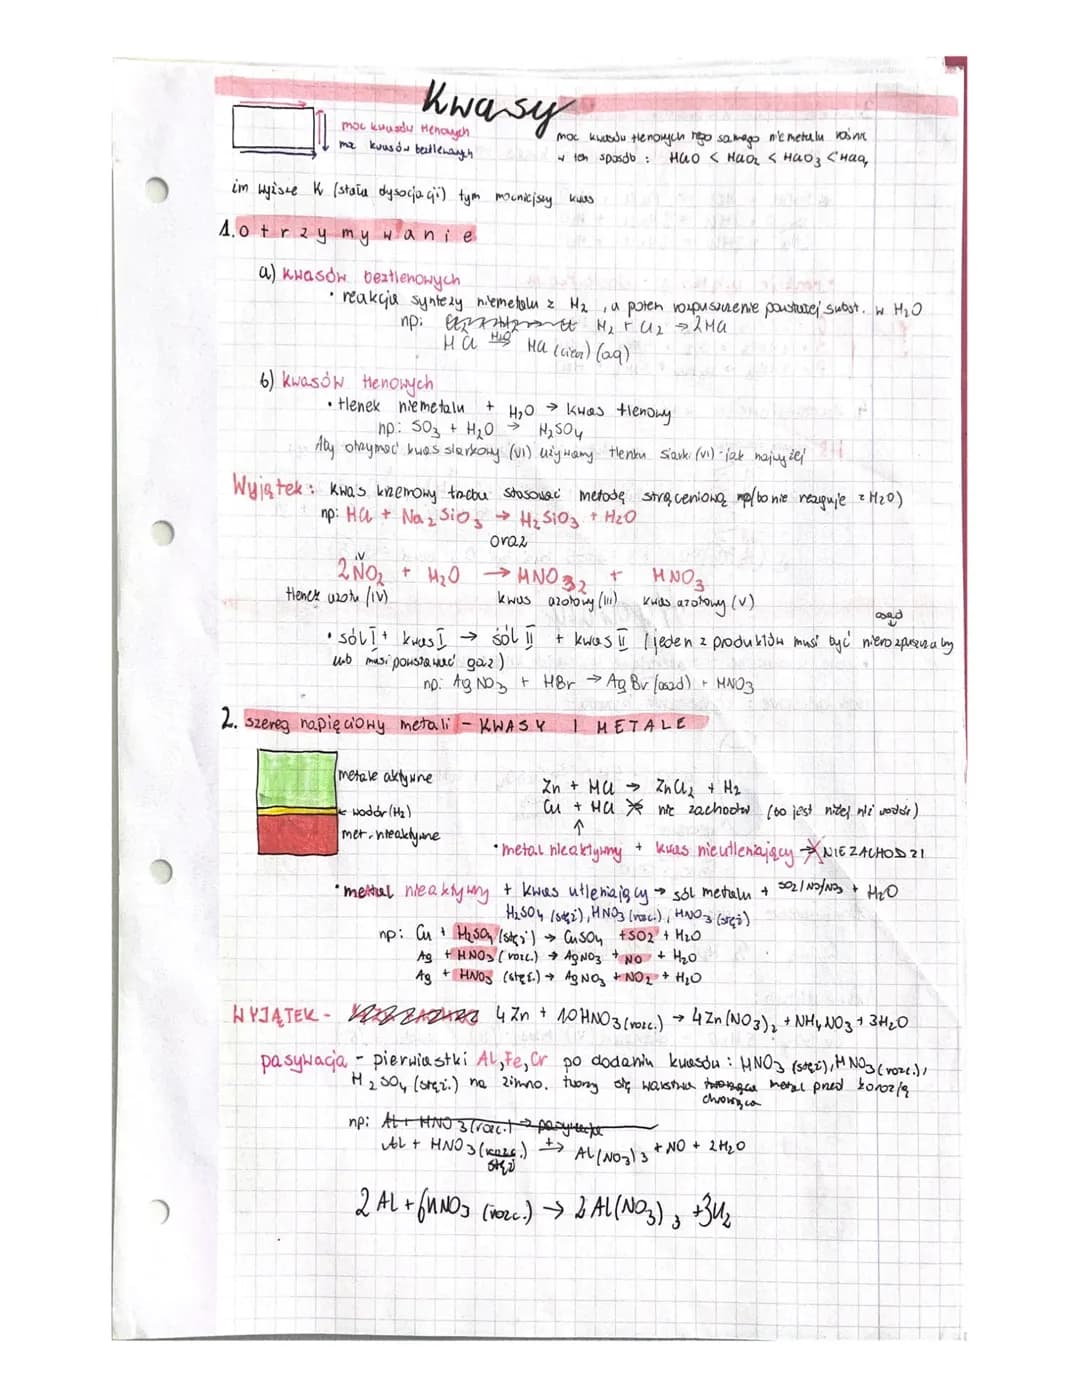 Kwasy
moc kwasów tlenowych
moc kwasów beztlenowych
moc kwasów tlenowych tego samego niemetalu rośnie
w ten sposób : HClO < HClO2 < HClO3 < HClO4
im wyższe K (stała dysocjacji) tym mocniejszy kwas
1. otrzymywanie
a) kwasów beztlenowych
• reakcja syntezy niemetalu z H2 , a potem rozpuszczenie powstałej subst. w H2O
np: H2 + Cl2 → 2HCl
HCl H2O→ HCl (ciecz) (aq)
b) kwasów tlenowych
• tlenek niemetalu + H2O → kwas tlenowy
np: SO3 + H2O → H2SO4
Aby otrzymać kwas siarkowy (VI) używamy tlenku siarki (VI) - jak najwyżej
Wyjątek : kwas krzemowy trzeba stosować metodę strąceniową (bo nie reaguje z H2O)
np: HCl + Na2SiO3 → H2SiO3 + H2O
oraz
IV
2NO2 + H2O → HNO2 + HNO3
tlenek azotu (IV) kwas azotowy (III) kwas azotowy (V)
osad
• sól I + kwas I → sól II + kwas II (jeden z produktów musi być nierozpuszczalny
lub musi powstawać gaz)
np: AgNO3 + HBr → AgBr (osad) + HNO3
2. szereg napięciowy metali - KWASY I METALE
metale aktywne
← wodór (H2)
met. nieaktywne
Zn + HCl → ZnCl2 + H2
Cu + HCl ↛ nie zachodzi (bo jest niżej niż wodór)
↑
• metal nieaktywny + kwas nieutleniający ↛ NIE ZACHODZI
• metal nieaktywny + kwas utleniający → sól metalu + SO2/NO/NO2 + H2O
H2SO4 (stęż), HNO3 (rozc.), HNO3 (stęż)
np: Cu + H2SO4 (stęż) → CuSO4 + SO2 + H2O
Ag + HNO3 (rozc.) → AgNO3 + NO + H2O
Ag + HNO3 (stęż.) → AgNO3 + NO2 + H2O
WYJĄTEK - 4Zn + 10HNO3 (rozc.) → 4Zn(NO3)2 + NH4NO3 + 3H2O
pasywacja - pierwiastki Al, Fe, Cr po dodaniu kwasów : HNO3 (stęż), HNO3 (rozc.),
H2SO4 (stęż.) na zimno. tworzy się warstwa metal przed korozją
chroniąca
np: Al + HNO3 (rozc.) → pasywacja
Al + HNO3 (rozc.) → Al(NO3)3 + NO + 2H2O
stęż
2Al + 6HNO3 (rozc.) → 2Al(NO3)3 + 3H2